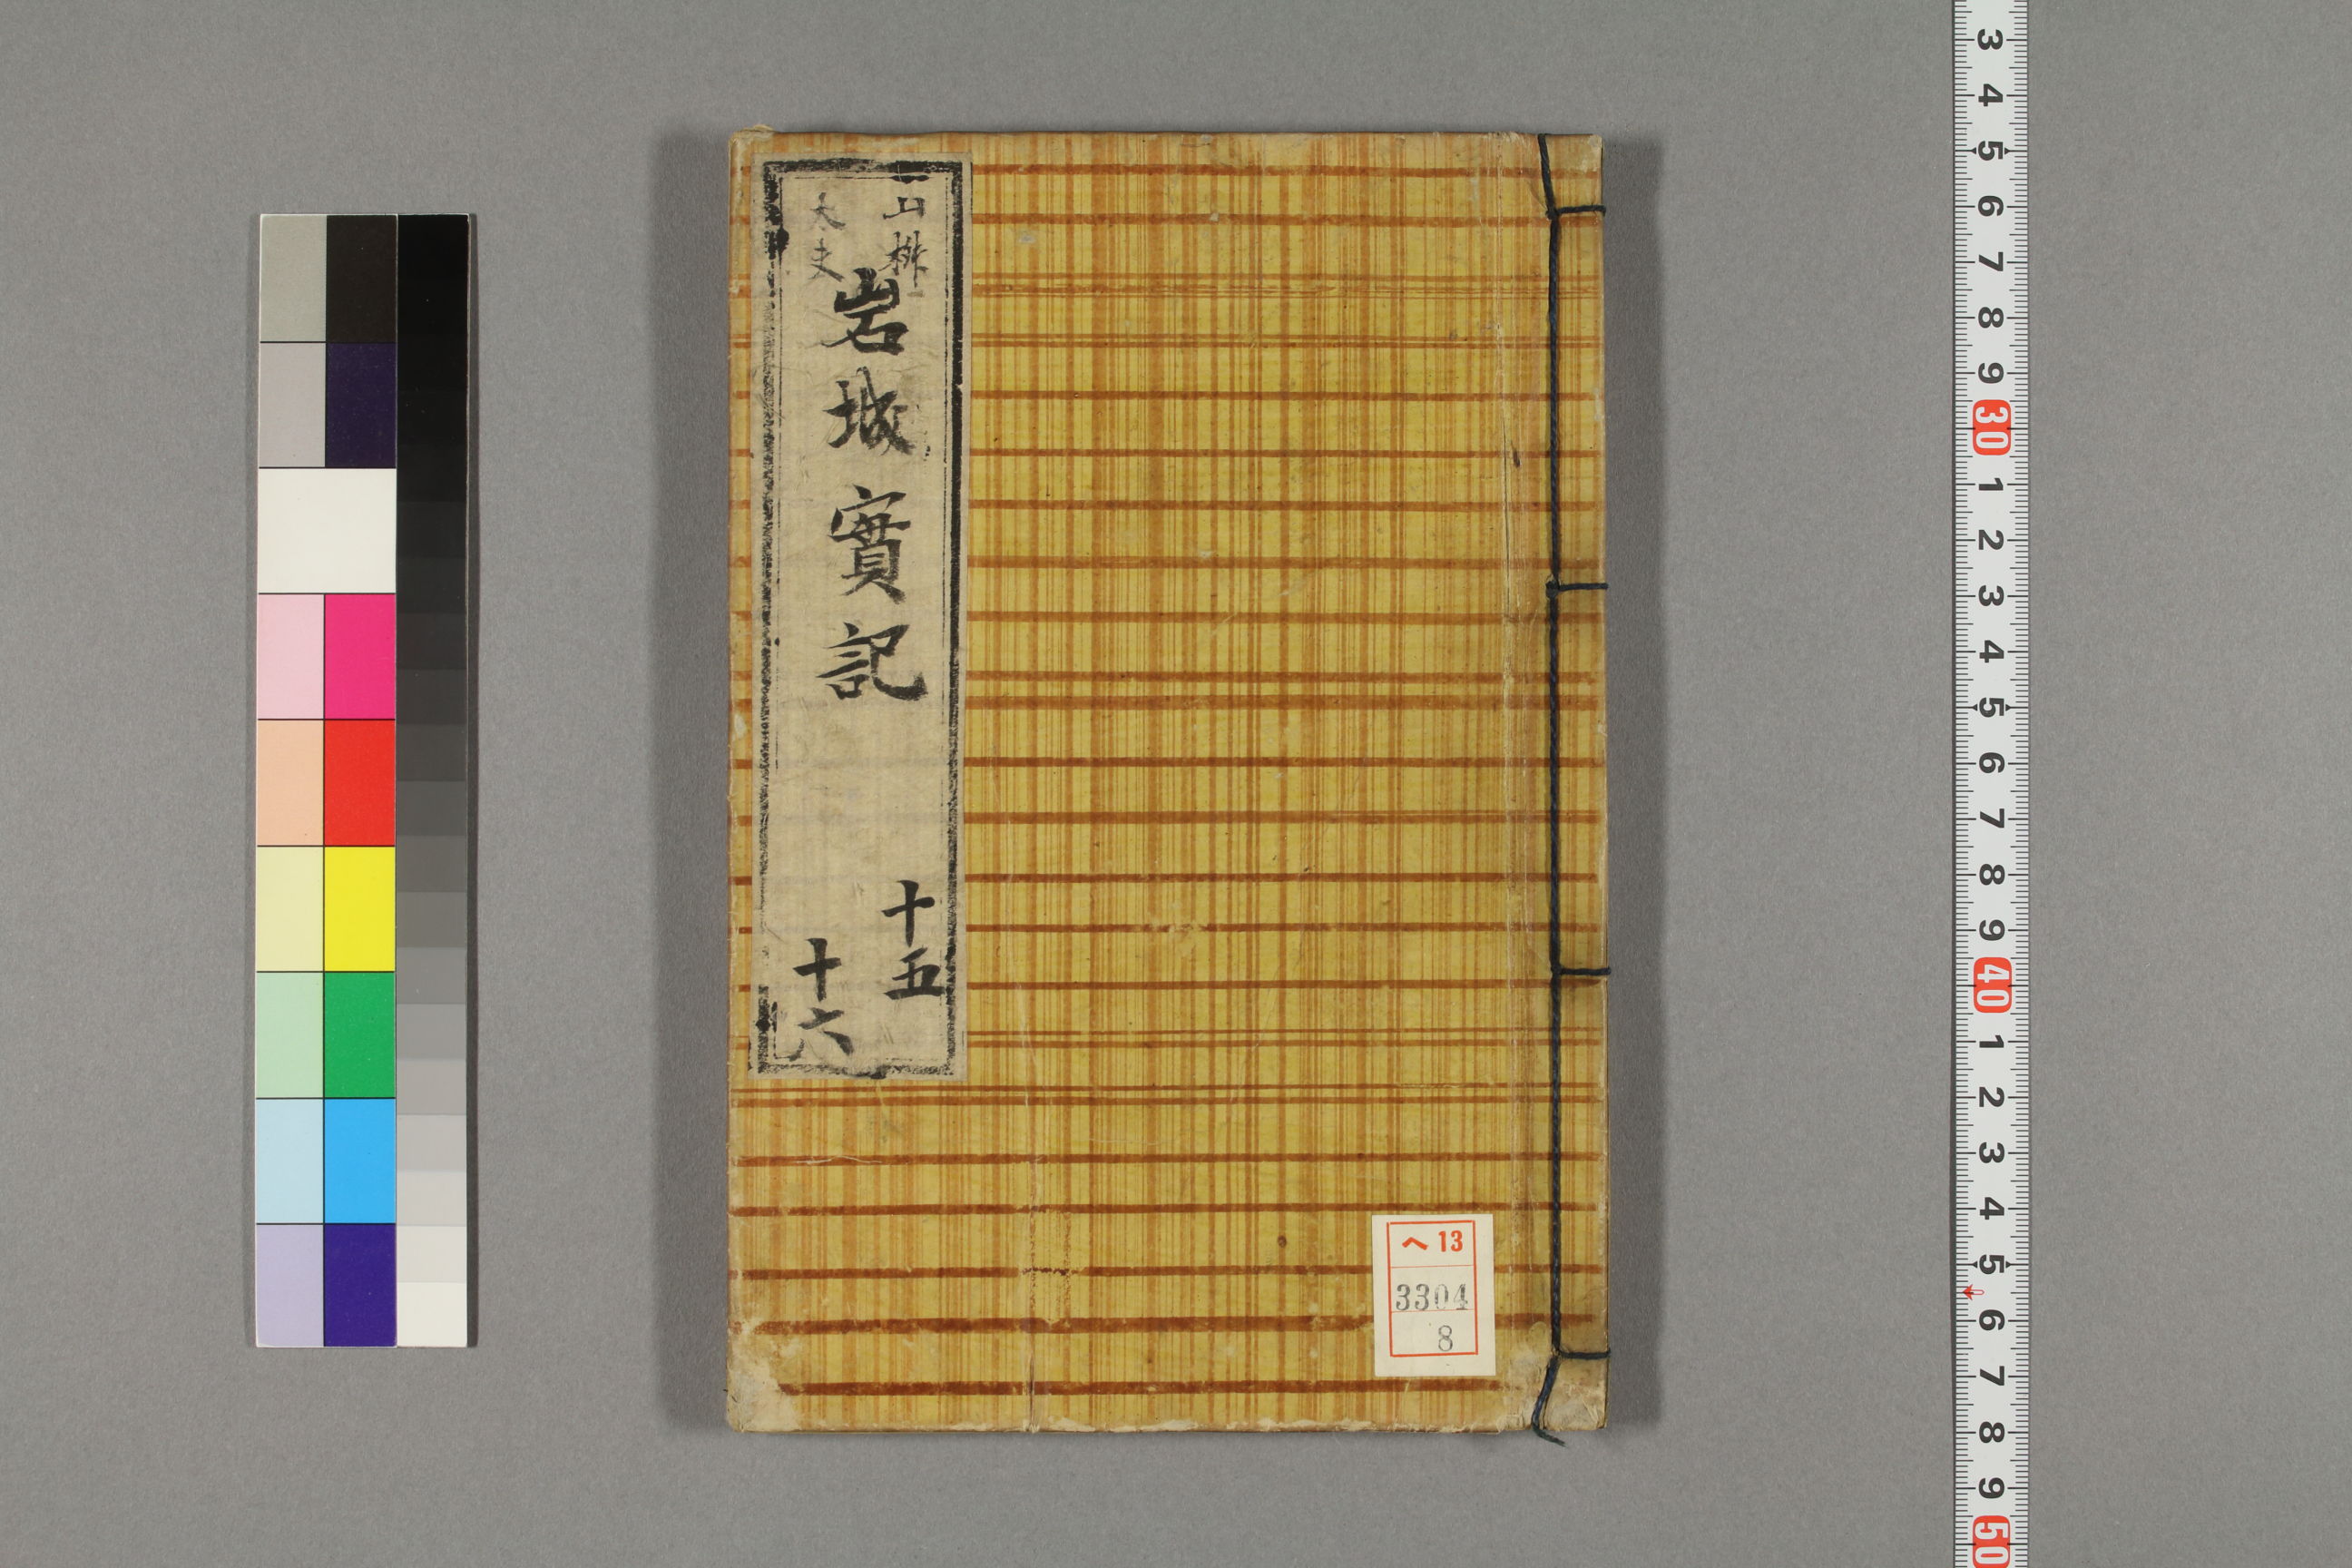 山桝
太夫
岩城實記
十五
十六
ヘ13
3304
8
3
4
5
6
7
8
9
30
1
2
3
4
5
6
7
8
9
40
1
2
3
4
5
6
7
8
9
50